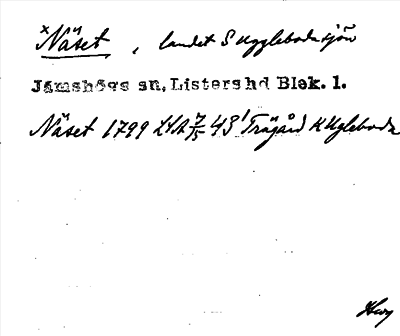 ×Näset, landet S Uggleboda sjön
Jämshögs sn, Listers hd Blek. l.
Näset 1799 LSA 7/15 43' Trägård K Ugleboda